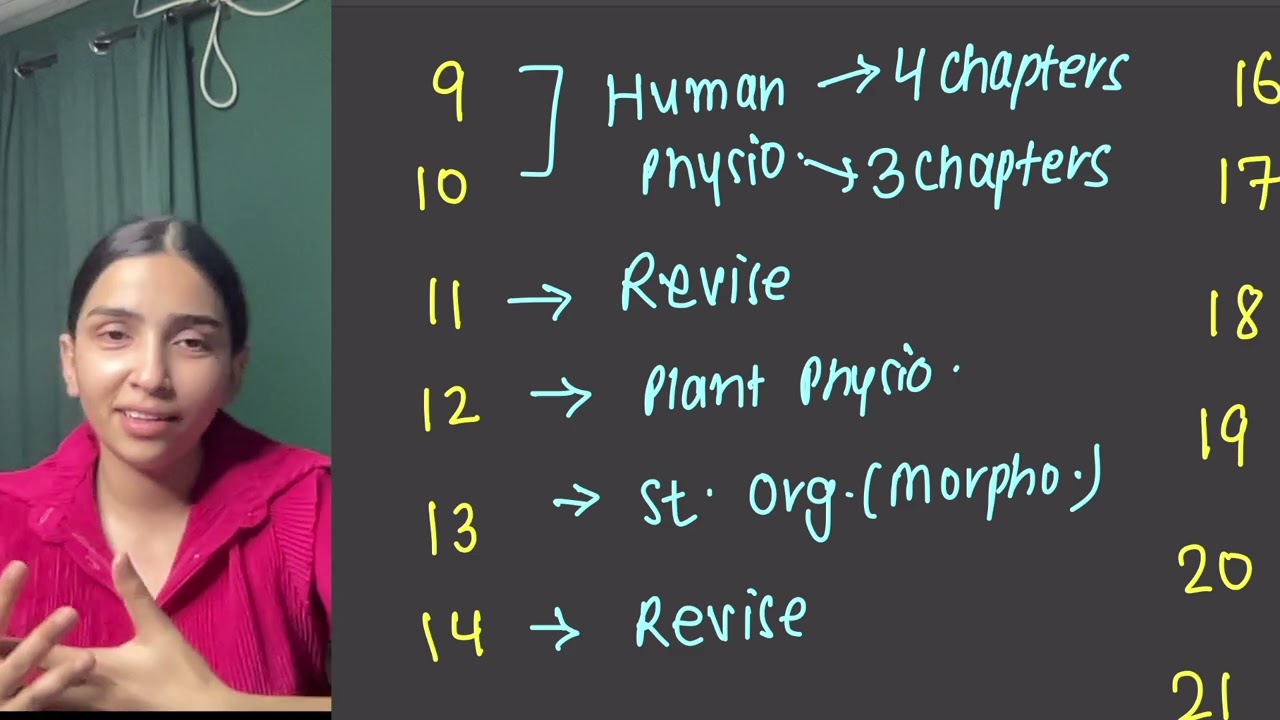 9 ] Human → 4 chapters
10 Physio. → 3 chapters
11 → Revise
12 → Plant Physio.
13 → St. Org. (Morpho.)
14 → Revise
16
17
18
19
20
21